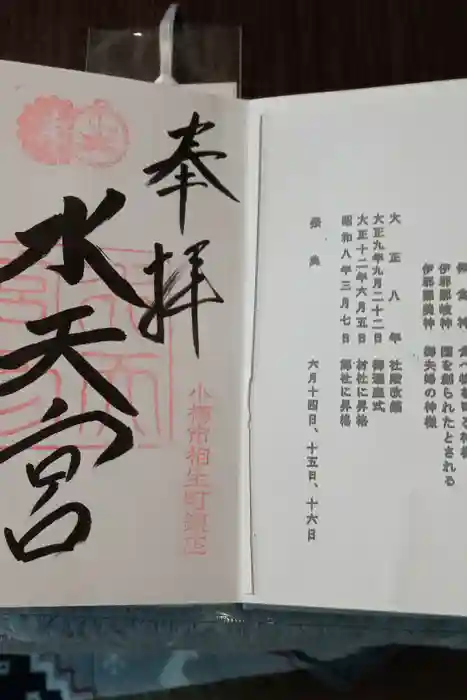 保食神 食べ物を司る神様
伊邪那岐神 国を創られたとされる
伊邪那美神 御夫婦の神様
大正八年 社殿改築
大正九年九月二十二日 御遷座式
大正十二年六月五日 村社に昇格
昭和八年三月七日 郷社に昇格
祭典 六月十四日、十五日、十六日
奉拝
小樽市相生町鎮座
水天宮